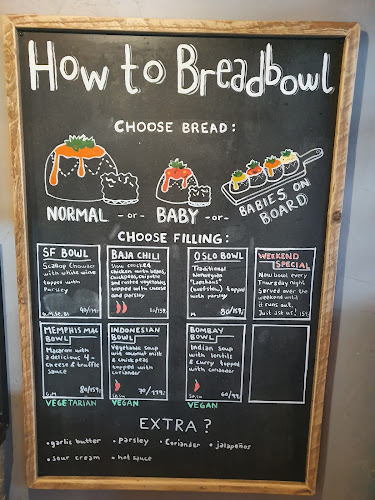 How to Breadbowl
CHOOSE BREAD:
NORMAL -or- BABY -or- BABIES ON
BOARD
CHOOSE FILLING:
SF BOWL
Scallop Chowder
with white wine
topped with
Parsley
BAJA CHILI
Slow roasted
chicken with beans,
chickpeas, chipotle
and roasted vegetables
topped with cheese
and parsley
OSLO BOWL
Traditional
Norwegian
"Lapskaus"
topped
with parsley
M
80/159,-
WEEKEND
SPECIAL
New bowl every
Thursday night
Served over the
weekend until
it runs out.
Just ask us!
MEMPHIS MAC
BOWL
Macaroni with
a delicious 4-
cheese & truffle
sauce
G,M
80/159,-
VEGETARIAN
INDONESIAN
BOWL
Vegetable soup
with coconut milk
& chickpeas
topped with
coriander
VEGAN
BOMBAY
BOWL
Indian Soup
with lentils
& curry topped
with coriander
VEGAN
EXTRA?
• garlic butter • parsley • Coriander • jalapeños
• sour cream • hot sauce